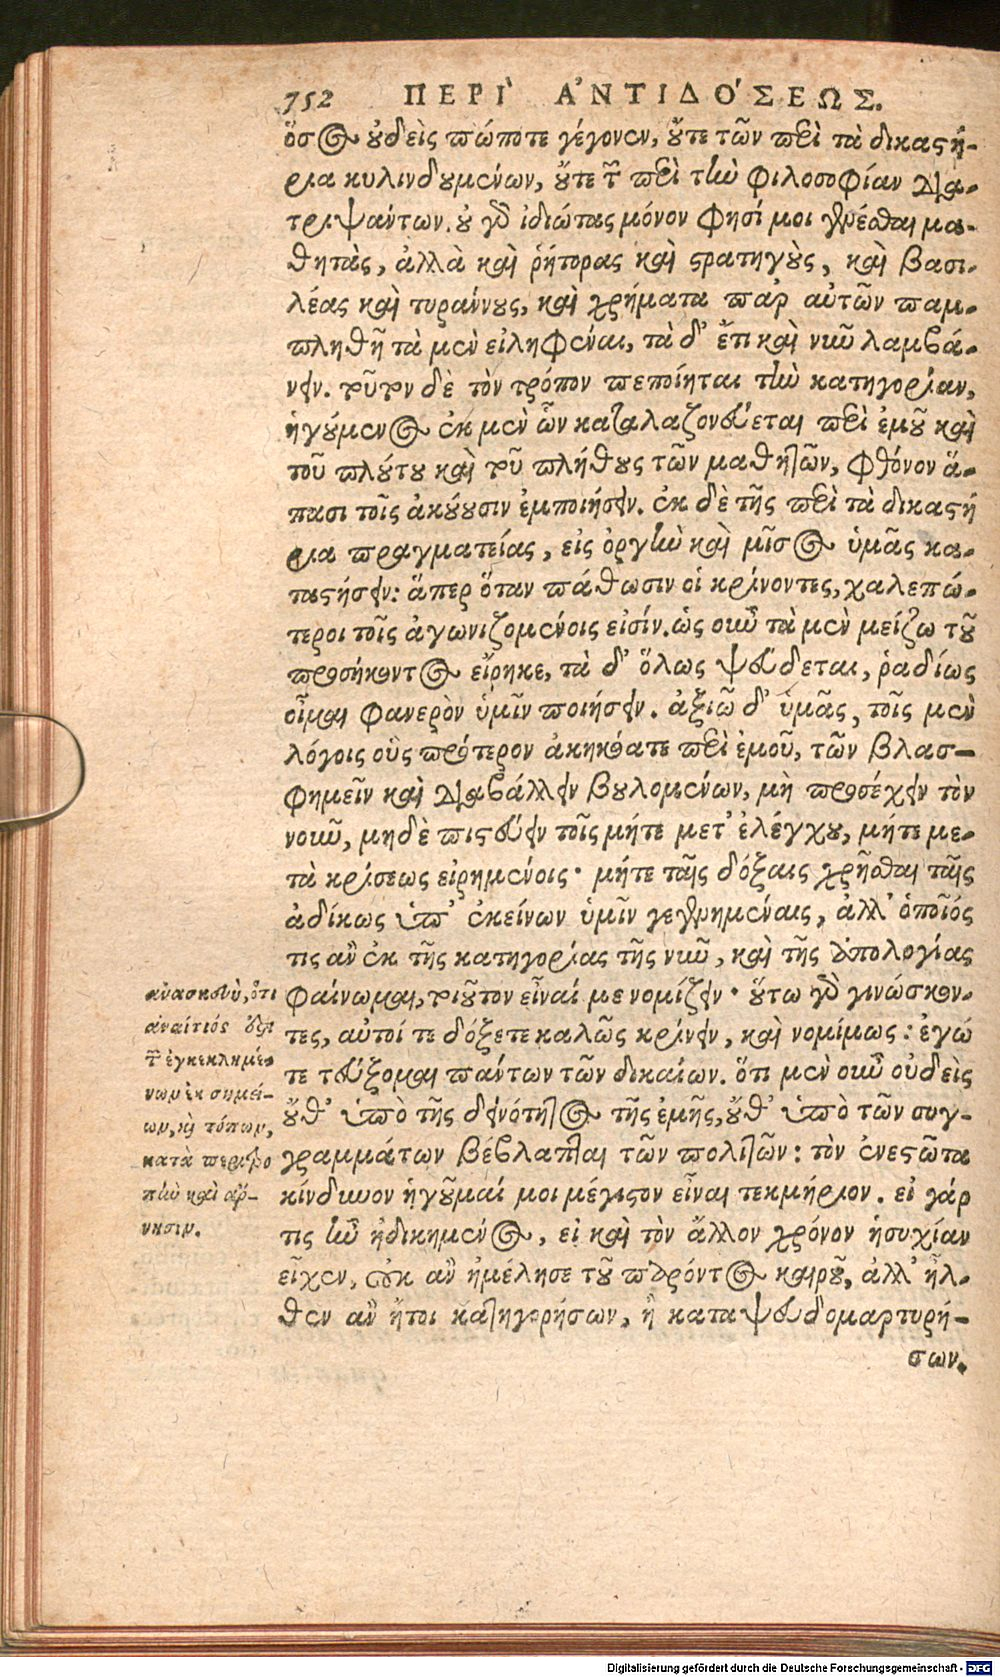 752 ΠΕΡΙ' Α'ΝΤΙΔΟ'ΣΕΩΣ.
ὅσος οὐδεὶς πώποτε γέγονεν, οὔτε τῶν περὶ τὰ δικαστή-
ρια κυλινδουμένων, οὔτε τῶν περὶ τὴν φιλοσοφίαν δια-
τριψάντων. οὐ γὰρ ἰδιώτας μόνον φησί μοι γενέσθαι μα-
θητὰς, ἀλλὰ καὶ ῥήτορας καὶ στρατηγοὺς, καὶ βασι-
λέας καὶ τυράννους, καὶ χρήματα παρ' αὐτῶν παμ-
πληθῆ τὰ μὲν εἰληφέναι, τὰ δ' ἔτι καὶ νῦν λαμβά-
νειν. τοῦτον δὲ τὸν τρόπον πεποίηται τὴν κατηγορίαν,
ἡγούμενος ἐκ μὲν ὧν καταλαζονεύεται περὶ ἐμοῦ καὶ
τοῦ πλούτου καὶ τοῦ πλήθους τῶν μαθητῶν, φθόνον ἅ-
πασι τοῖς ἀκούουσιν ἐμποιήσειν. ἐκ δὲ τῆς περὶ τὰ δικαστή
ρια πραγματείας, εἰς ὀργὴν καὶ μῖσος ὑμᾶς κα-
ταστήσειν: ἅπερ ὅταν πάθωσιν οἱ κρίνοντες, χαλεπώ-
τεροι τοῖς ἀγωνιζομένοις εἰσίν. ὡς οὖν τὰ μὲν μείζω τοῦ
προσήκοντος εἴρηκε, τὰ δ' ὅλως ψεύδεται, ῥαδίως
οἶμαι φανερὸν ὑμῖν ποιήσειν. ἀξιῶ δ' ὑμᾶς, τοῖς μὲν
λόγοις οὓς πρότερον ἀκηκόατε περὶ ἐμοῦ, τῶν βλασ-
φημεῖν καὶ διαβάλλειν βουλομένων, μὴ προσέχειν τὸν
νοῦν, μηδὲ πιστεύειν τοῖς μήτε μετ' ἐλέγχου, μήτε με-
τὰ κρίσεως εἰρημένοις· μήτε ταῖς δόξαις χρῆσθαι ταῖς
ἀδίκως ὑπ' ἐκείνων ὑμῖν γεγενημέναις, ἀλλ' ὁποῖός
τις ἂν ἐκ τῆς κατηγορίας τῆς νῦν, καὶ τῆς ἀπολογίας
φαίνωμαι, τοιοῦτον εἶναί με νομίζειν· οὕτω γὰρ γινώσκον-
τες, αὐτοί τε δόξετε καλῶς κρίνειν, καὶ νομίμως: ἐγώ
τε τεύξομαι πάντων τῶν δικαίων. ὅτι μὲν οὖν οὐδεὶς
οὔθ' ὑπὸ τῆς δεινότητος τῆς ἐμῆς, οὔθ' ὑπὸ τῶν συγ-
γραμμάτων βέβλαπται τῶν πολιτῶν: τὸν ἐνεστῶτα
κίνδυνον ἡγοῦμαί μοι μέγιστον εἶναι τεκμήριον. εἰ γάρ
τις ἦν ἠδικημένος, εἰ καὶ τὸν ἄλλον χρόνον ἡσυχίαν
εἶχεν, οὐκ ἂν ἠμέλησε τοῦ παρόντος καιροῦ, ἀλλ' ἦλ-
θεν ἂν ἤτοι κατηγορήσων, ἢ καταψευδομαρτυρή-
σων.
ἀνασκευὴ, ὅτι
ἀναίτιός ἐστι
τῶν ἐγκεκλημέ-
νων ἐκ σημεί-
ων, καὶ τόπων,
κατὰ περιτρο
πὴν καὶ ἄρ-
νησιν.
Digitalisierung gefördert durch die Deutsche Forschungsgemeinschaft - DFG